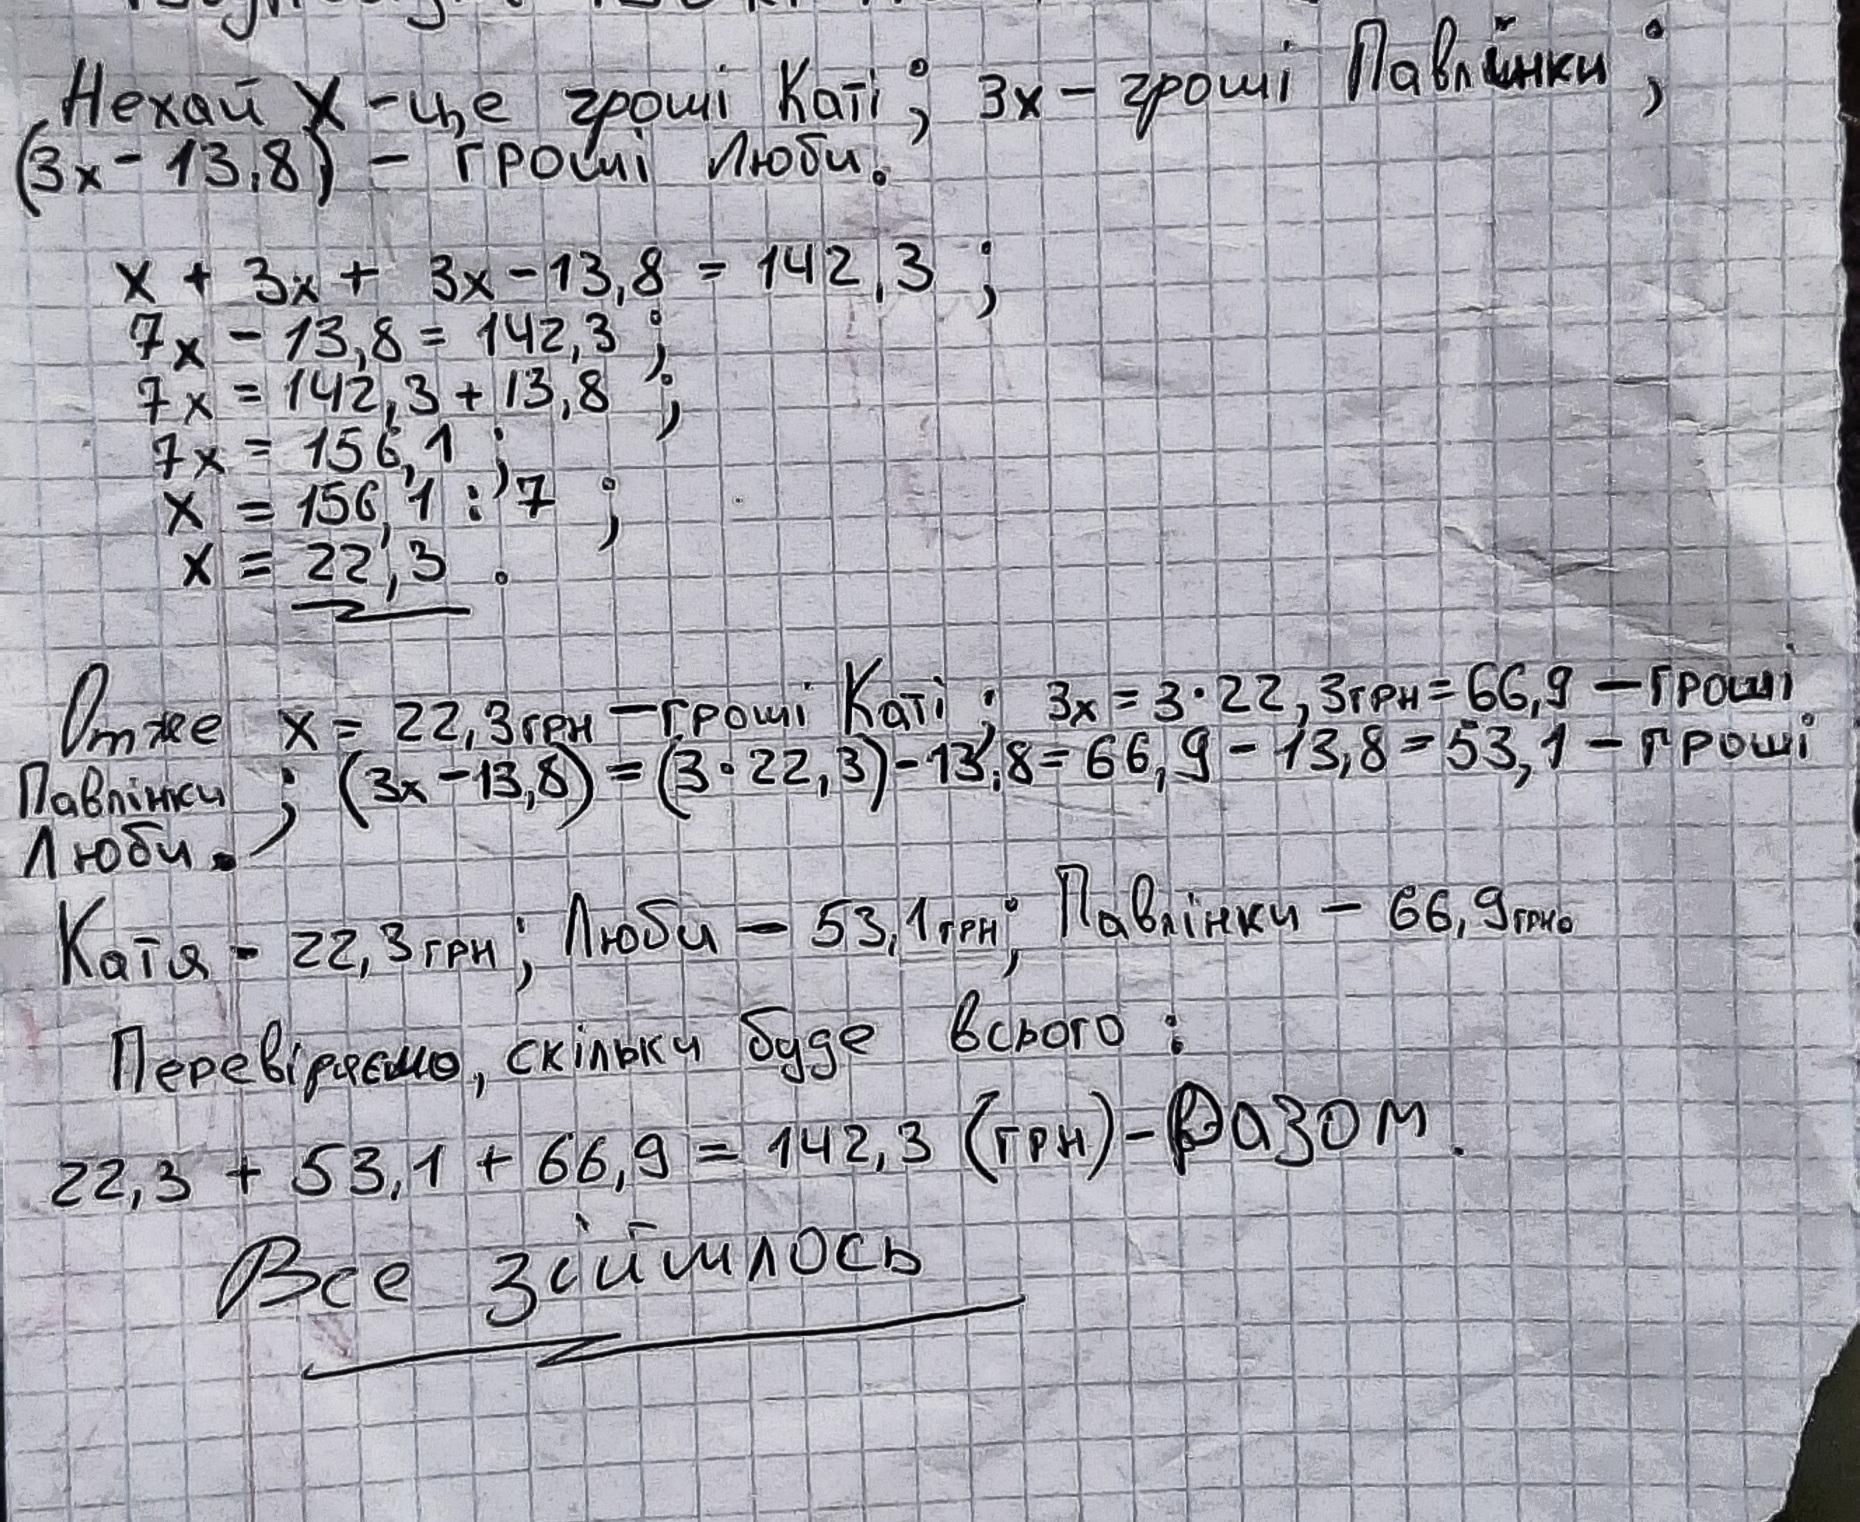 Нехай х - це гроші Каті; 3х - гроші Павлінки;
(3х - 13,8) - гроші Люби.
х + 3х + 3х - 13,8 = 142,3 ;
7х - 13,8 = 142,3 ;
7х = 142,3 + 13,8 ;
7х = 156,1 ;
х = 156,1 : 7 ;
х = 22,3 .
Отже х = 22,3 грн - гроші Каті ; 3х = 3·22,3грн = 66,9 - гроші
Павлінки ; (3х - 13,8) = (3·22,3) - 13,8 = 66,9 - 13,8 = 53,1 - гроші
Люби.
Катя - 22,3 грн ; Люби - 53,1 грн ; Павлінки - 66,9 грн.
Перевіряємо, скільки буде всього :
22,3 + 53,1 + 66,9 = 142,3 (грн) - Разом.
Все зіймлось